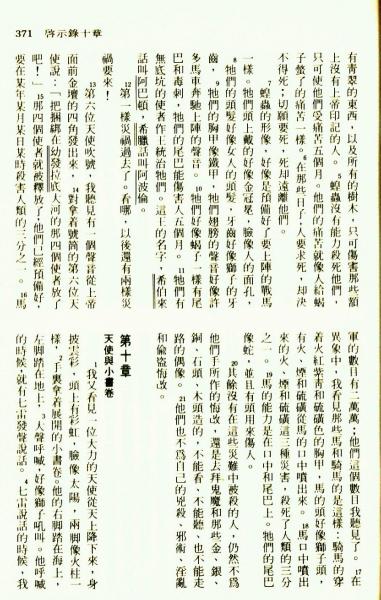 371 啓示錄十章
有青翠的東西，以及所有的樹木，只可傷害那些額
上沒有上帝印記的人。5 蝗蟲沒有能力殺死他們，
只可使他們受痛苦五個月。他們的痛苦就像人給蝎
子螫了的痛苦一樣。6 在那些日子，人要求死，却決
不得死；切願要死，死却遠離他們。
7 蝗蟲的形像，好像是預備好了要上陣的戰馬
一樣。牠們頭上戴的好像金冠冕，臉像人的面孔，
8 牠們的頭髮好像女人的頭髮，牙齒好像獅子的牙
齒，9 牠們的胸甲像鐵甲，牠們翅膀的聲音好像許
多馬車奔馳上陣的聲音。10 牠們好像蝎子一樣有尾
巴和毒刺，牠們的尾巴能傷害人五個月。11 牠們有
無底坑的使者作王統治牠們。這王的名字，希伯來
話叫阿巴頓，希臘話叫阿波倫。
12 第一樣災禍過去了。看哪，以後還有兩樣災
禍要來！
13 第六位天使吹號，我聽見有一個聲音從上帝
面前金壇的四角發出來，14 對拿着號筒的第六位天
使說：「把捆綁在幼發拉底大河的那四個使者放了
吧！」15 那四個使者就被釋放了；他們已經預備好，
要在某年某月某日某時殺害人類的三分之一。16 馬
軍的數目有二萬萬；他們這個數目我聽見了。17 在
異象中，我看見那些馬和騎馬的是這樣：騎馬的穿
着火紅紫青和硫磺色的胸甲，馬的頭好像獅子頭，
有火、煙和硫磺從馬的口中噴出來。18 馬口中噴出
來的火、煙和硫磺這三種災害，殺死了人類的三分
之一。19 馬的能力是在口中和尾巴上。牠們的尾巴
像蛇，並且有頭用來傷人。
20 其餘沒有在這些災難中被殺的人，仍然不爲
他們手所作的悔改，還是去拜鬼魔和那些金、銀、
銅、石頭、木頭造的，不能看、不能聽、也不能走
路的偶像。21 他們也不爲自己的兇殺、邪術、淫亂
和偷盜悔改。
第十章
天使與小書卷
1 我又看見一位大力的天使從天上降下來，身
披雲彩，頭上有彩虹，臉像太陽，兩脚像火柱一
樣，2 手裏拿着展開的小書卷。他的右脚踏在海上，
左脚踏在地上，3 大聲呼喊，好像獅子吼叫。他呼喊
的時候，就有七雷發聲說話。4 七雷說話的時候，我